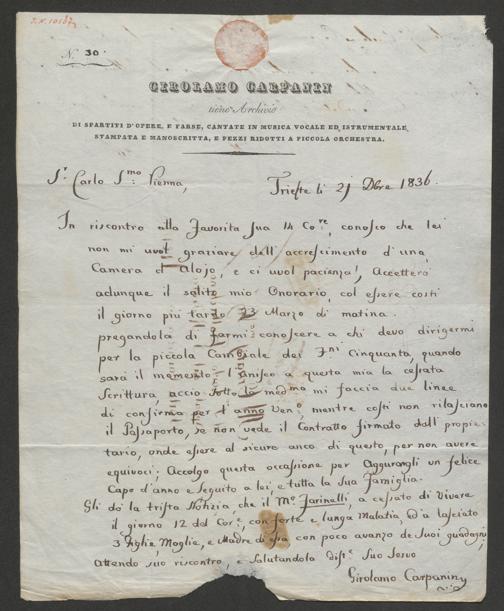 N. 30.
GIROLAMO CARPANIN
tiene Archivio
DI SPARTITI D'OPERE, E FARSE, CANTATE IN MUSICA VOCALE ED ISTRUMENTALE,
STAMPATA E MANOSCRITTA, E PEZZI RIDOTTI A PICCOLA ORCHESTRA.
Sr Carlo Smo Vienna,
Trieste li 21 Dbre 1836.
In riscontro alla Favorita Sua 14 Core, conosco che lei
non mi vuol graziare dell'accrescimento d'una
Camera d'Alojo, e ci vuol pacienza!, Accetterò
adunque il solito mio Onorario, col essere costì
il giorno più tardo 23 Marzo di matina.
pregandola di farmi conoscere a chi devo dirigermi
per la piccola Cambiale dei Fni Cinquanta, quando
sarà il momento. l'anisco a questa mia la cessata
Scrittura, acciò sotto la medma mi faccia due linee
di conferma per l'anno Veno, mentre costì non rilasciano
il Passaporto, se non vede il Contratto firmato dall'proprie-
tario, onde essere al sicuro anco di questo, per non avere
equivoci; Accolgo questa occasione per Aggurargli un felice
Capo d'anno e seguito a lei, e tutta la sua Famiglia.
Gli do la trista Notizia, che il Mo Farinelli, a cessato di Vivere
il giorno 12 del Core, con forte e lunga Malatia, ed a lasciato
3 Figlie, Moglie, e Madre di con poco avanzo de Suoi guadagni,
Attendo suo riscontro, e Salutandola distte Suo Servo
Girolamo Carpanin